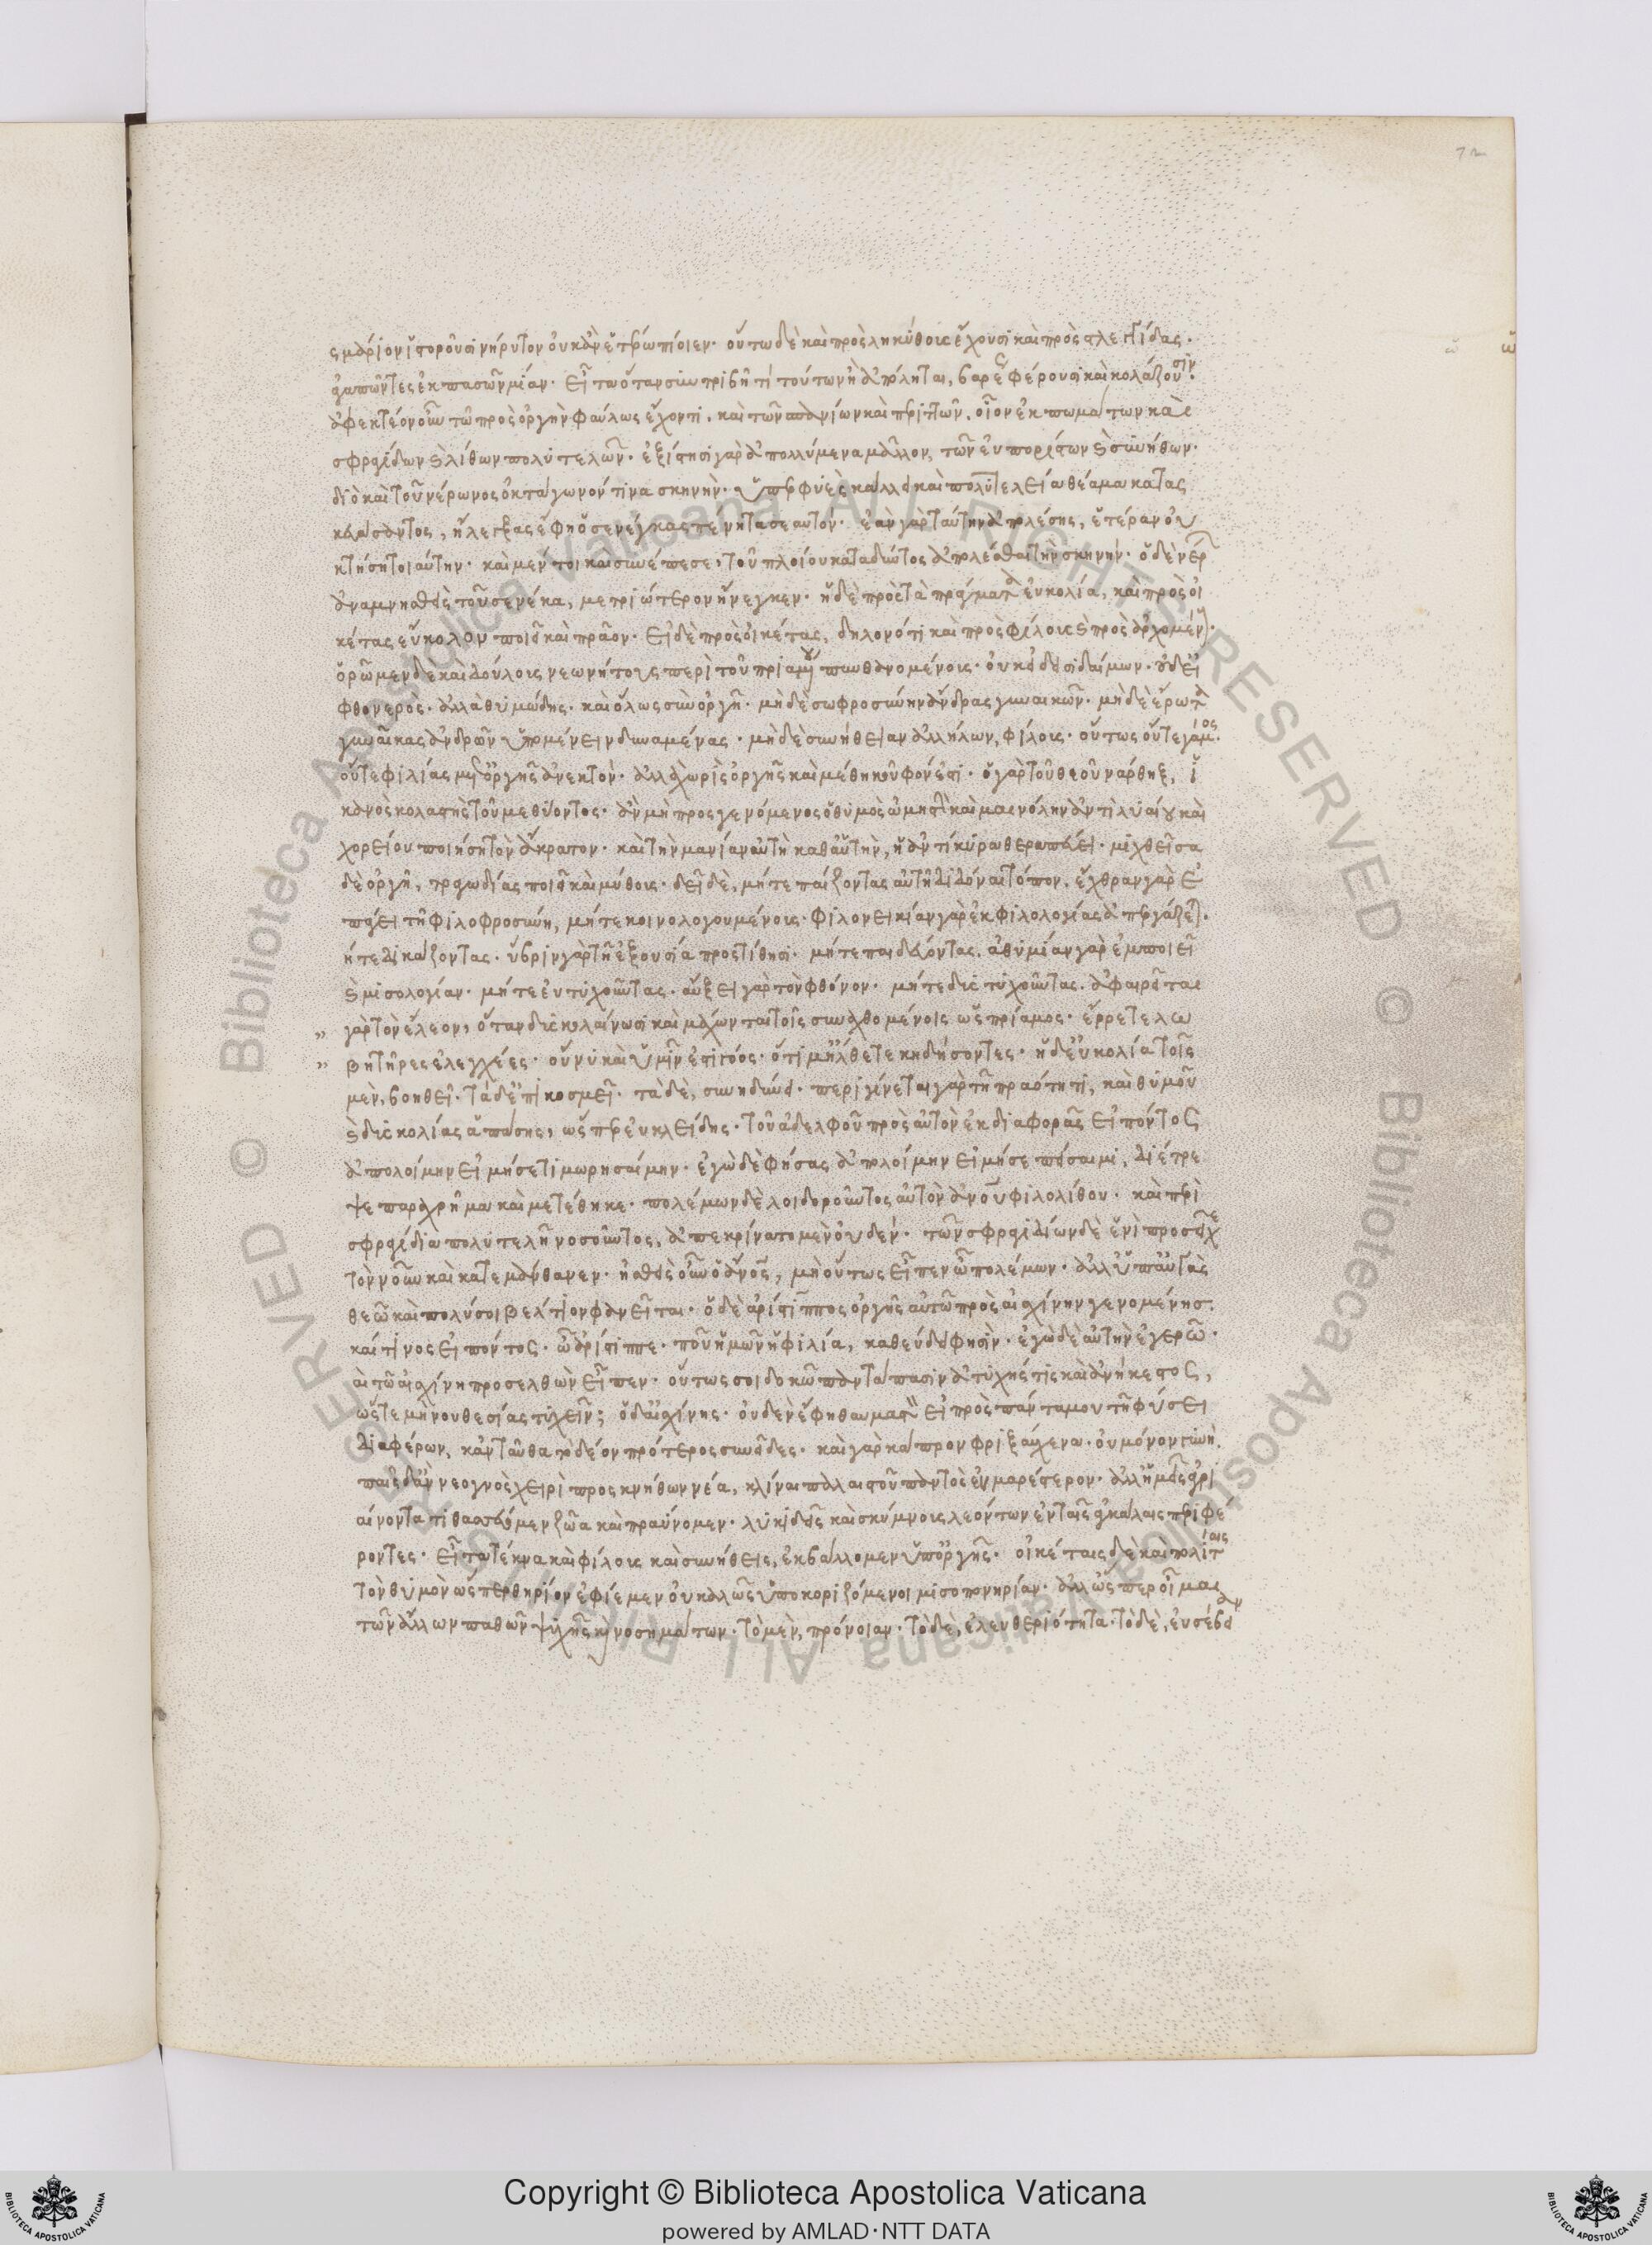 72
ς μάριον ἱστοροῦσι νήρυτον οὐκ ἂν ἑτέρω πίοιεν· οὕτω δὲ καὶ πρὸς ληκύθοις ἔχουσι καὶ πρὸς στλεγγίδας·
ἀγαπῶντες ἐκ πασῶν μίαν· εἶτα ὅταν συντριβῆ τί τούτων ἢ ἀπόληται, βαρέως φέρουσι καὶ κολάζουσιν·
ἀφεκτέον οὖν τῶ πρὸς ὀργὴν φαύλως ἔχοντι, καὶ τῶν σπανίων καὶ περιττῶν, οἷον ἐκπωμάτων καὶ
σφραγίδων καὶ λίθων πολυτελῶν· ἐξίστησι γὰρ ἀπολλύμενα μᾶλλον, τῶν εὐπορίστων καὶ συνήθων·
διὸ καὶ τοῦ νέρωνος ὀκτάγωνόν τινα σκηνὴν· ὑπερφυὲς κάλλει καὶ πολυτελεία θέαμα κατας
κευάσαντος, ἤλεγξας ἔφη ὁ σενέκας πένητα σεαυτόν· ἐὰν γὰρ ταύτην ἀπολέσης, ἑτέραν οὐ
κτήση τοιαύτην· καὶ μέν τοι καὶ συνέπεσε, τοῦ πλοίου καταδύντος ἀπολέσθαι τὴν σκηνήν· ὁ δὲ νέρων
ἀναμνησθεὶς τοῦ σενέκα, μετριώτερον ἤνεγκεν· ἡ δὲ πρὸς τὰ πράγματα εὐκολία, καὶ πρὸς οἰ
κέτας εὔκολον ποιεῖ καὶ πρᾶον· εἰ δὲ πρὸς οἰκέτας, δηλονότι καὶ πρὸς φίλοις καὶ πρὸς ἀρχομένους·
ὁρῶμεν δὲ καὶ δούλοις νεωνήτους περὶ τοῦ πριαμένου πυνθανομένοις· οὐκ εἰ δεισιδαίμων· οὐδ' εἰ
φθονερὸς· ἀλλὰ θυμώδης· καὶ ὅλως σὺν ὀργῆ· μηδὲ σωφροσύνην ἄνδρας γυναικῶν· μηδὲ ἔρωτα
γυναῖκας ἀνδρῶν ὑπομένειν δυναμένας· μηδὲ συνήθειαν ἀλλήλων, φίλοις· οὕτως οὔτε γάμος·
οὔτε φιλίας μετ' ὀργῆς ἀνεκτὸν· ἀλλὰ χωρὶς ὀργῆς καὶ μέθη κοῦφόν ἐστι· ὁ γὰρ τοῦ θεοῦ νάρθηξ, ἱ
κανὸς κολαστὴς τοῦ μεθύοντος· ἂν μὴ προςγενόμενος ὁ θυμὸς ὠμηστὴν καὶ μαινόλην ἀντὶ λυαίου καὶ
χορείου ποιήση τὸν ἄκρατον· καὶ τὴν μανίαν αὐτὴν καθ' αὑτὴν, ἡ ἀντίκυρα θεραπεύει· μιχθεῖσα
δὲ ὀργῆ, τραγωδίας ποιεῖ καὶ μύθοις· δεῖ δὲ, μήτε παίζοντας αὐτῆ διδόναι τόπον, ἔχθραν γὰρ ἐ
πάγει τῆ φιλοφροσύνη, μήτε κοινολογουμένοις· φιλονεικίαν γὰρ ἐκ φιλολογίας ἀπεργάζεται·
ἥτε δικάζοντας· ὕβριν γὰρ τῆ ἐξουσία προςτίθησι· μήτε παιδεύοντας, ἀθυμίαν γὰρ ἐμποιεῖ
καὶ μισολογίαν· μήτε εὐτυχοῦντας· αὔξει γὰρ τὸν φθόνον· μήτε δυςτυχοῦντας, ἀφαιρεῖται
γὰρ τὸν ἔλεον, ὅταν δυςκολαίνωσι καὶ μάχωνται τοῖς συναχθομένοις ὡς πρίαμος· ἔρρετε λω
βητῆρες ἐλεγχέες· οὔ νυ καὶ ὑμῖν ἐστι γόος· ὅτι μ' ἤλθετε κηδήσοντες· ἡ δ' εὐκολία τοῖς
μὲν, βοηθεῖ· τὰ δ' ἐπικοσμεῖ· τὰ δὲ, συνηδύνει· περιγίνεται γὰρ τῆ πραότητι, καὶ θυμοῦ
καὶ δυςκολίας ἁπάσης, ὥςπερ εὐκλείδης· τοῦ ἀδελφοῦ πρὸς αὐτὸν ἐκ διαφορᾶς εἰπόντος
ἀπολοίμην εἰ μή σε τιμωρησαίμην· ἐγὼ δὲ φήσας ἀπολοίμην εἰ μή σε πείσαιμι, διέτρε
ψε παραχρῆμα καὶ μετέθηκε· πολέμων δὲ λοιδοροῦντος αὐτὸν ἀνοῦ φιλολίθου· καὶ περὶ
σφραγίδια πολυτελῆ νοσοῦντος, ἀπεκρίνατο μὲν οὐδέν· τῶν σφραγιδίων δὲ ἑνὶ προσεῖχε
τὸν νοῦν καὶ κατεμάνθανεν· ἡσθεὶς οὖν ὁ ἄνος, μὴ οὕτως εἶπεν ὦ πολέμων· ἀλλ' ὑπ' αὐγὰς
θεῶ καὶ πολύ σοι βελτίον φανεῖται· ὁ δὲ ἀρίστιππος ὀργῆς αὐτῶ πρὸς αἰσχίνην γενομένης·
καί τινος εἰπόντος· ὦ ἀρίστιππε· ποῦ ἡμῶν ἡ φιλία, καθεύδει φησὶν· ἐγὼ δὲ αὐτὴν ἐγερῶ·
αι τῶ αἰσχίνη προσελθὼν εἶπεν· οὕτως σοι δοκῶ παντάπασιν ἀτυχής τις καὶ ἀνήκεστος,
ὥςτε μὴ νουθεσίας τυχεῖν; ὁ δ' αἰσχίνης· οὐδὲν ἔφη θαυμαστὸν εἰ πρὸς πάντα μου τῆ φύσει
διαφέρων, κἀνταῦθα τὸ δέον πρότερος συνεῖδες· καὶ γὰρ κάπρον φριξαύχενα· οὐ μόνον γυνὴ.
παῖς δ' ἂν νεογνὸς χειρὶ προς κνήθων νέα, κλίναι παλαιστοῦ παντὸς εὐμαρέστερον· ἀλλ' ἡμεῖς ἀγρι
αίνοντα τιθασεύομεν ζῶα καὶ πραΰνομεν· λυκιδεῖς καὶ σκύμνοις λεόντων ἐν ταῖς ἀγκάλαις περιφέ
ροντες· εἶτα τέκνα καὶ φίλοις καὶ συνήθεις, ἐκβάλλομεν ὑπ' ὀργῆς· οἰκέταις δὲ καὶ πολίταις
τὸν θυμὸν ὥςπερ θηρίον ἐφίεμεν οὐ καλῶς ὑποκοριζόμενοι μισοπονηρίαν· ἀλλ' ὥςπερ οἶμαι
τῶν ἄλλων παθῶν ψυχῆς καὶ νοσημάτων· τὸ μὲν, πρόνοιαν· τὸ δὲ, ἐλευθεριότητα· τὸ δὲ, εὐσέβειαν
Copyright © Biblioteca Apostolica Vaticana
powered by AMLAD·NTT DATA